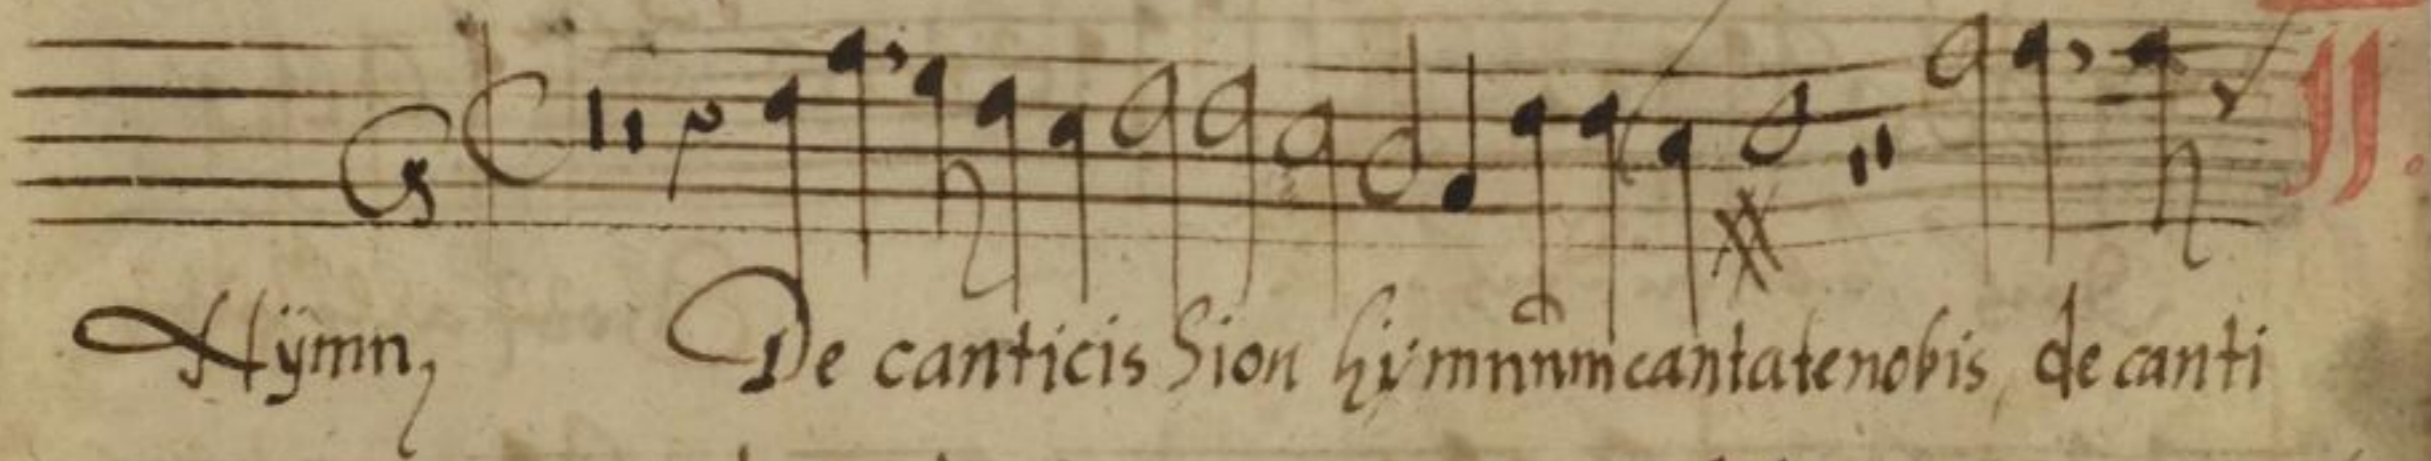 JJ.
Hÿmn, De canticis Sion hÿmnum cantate nobis, de canti